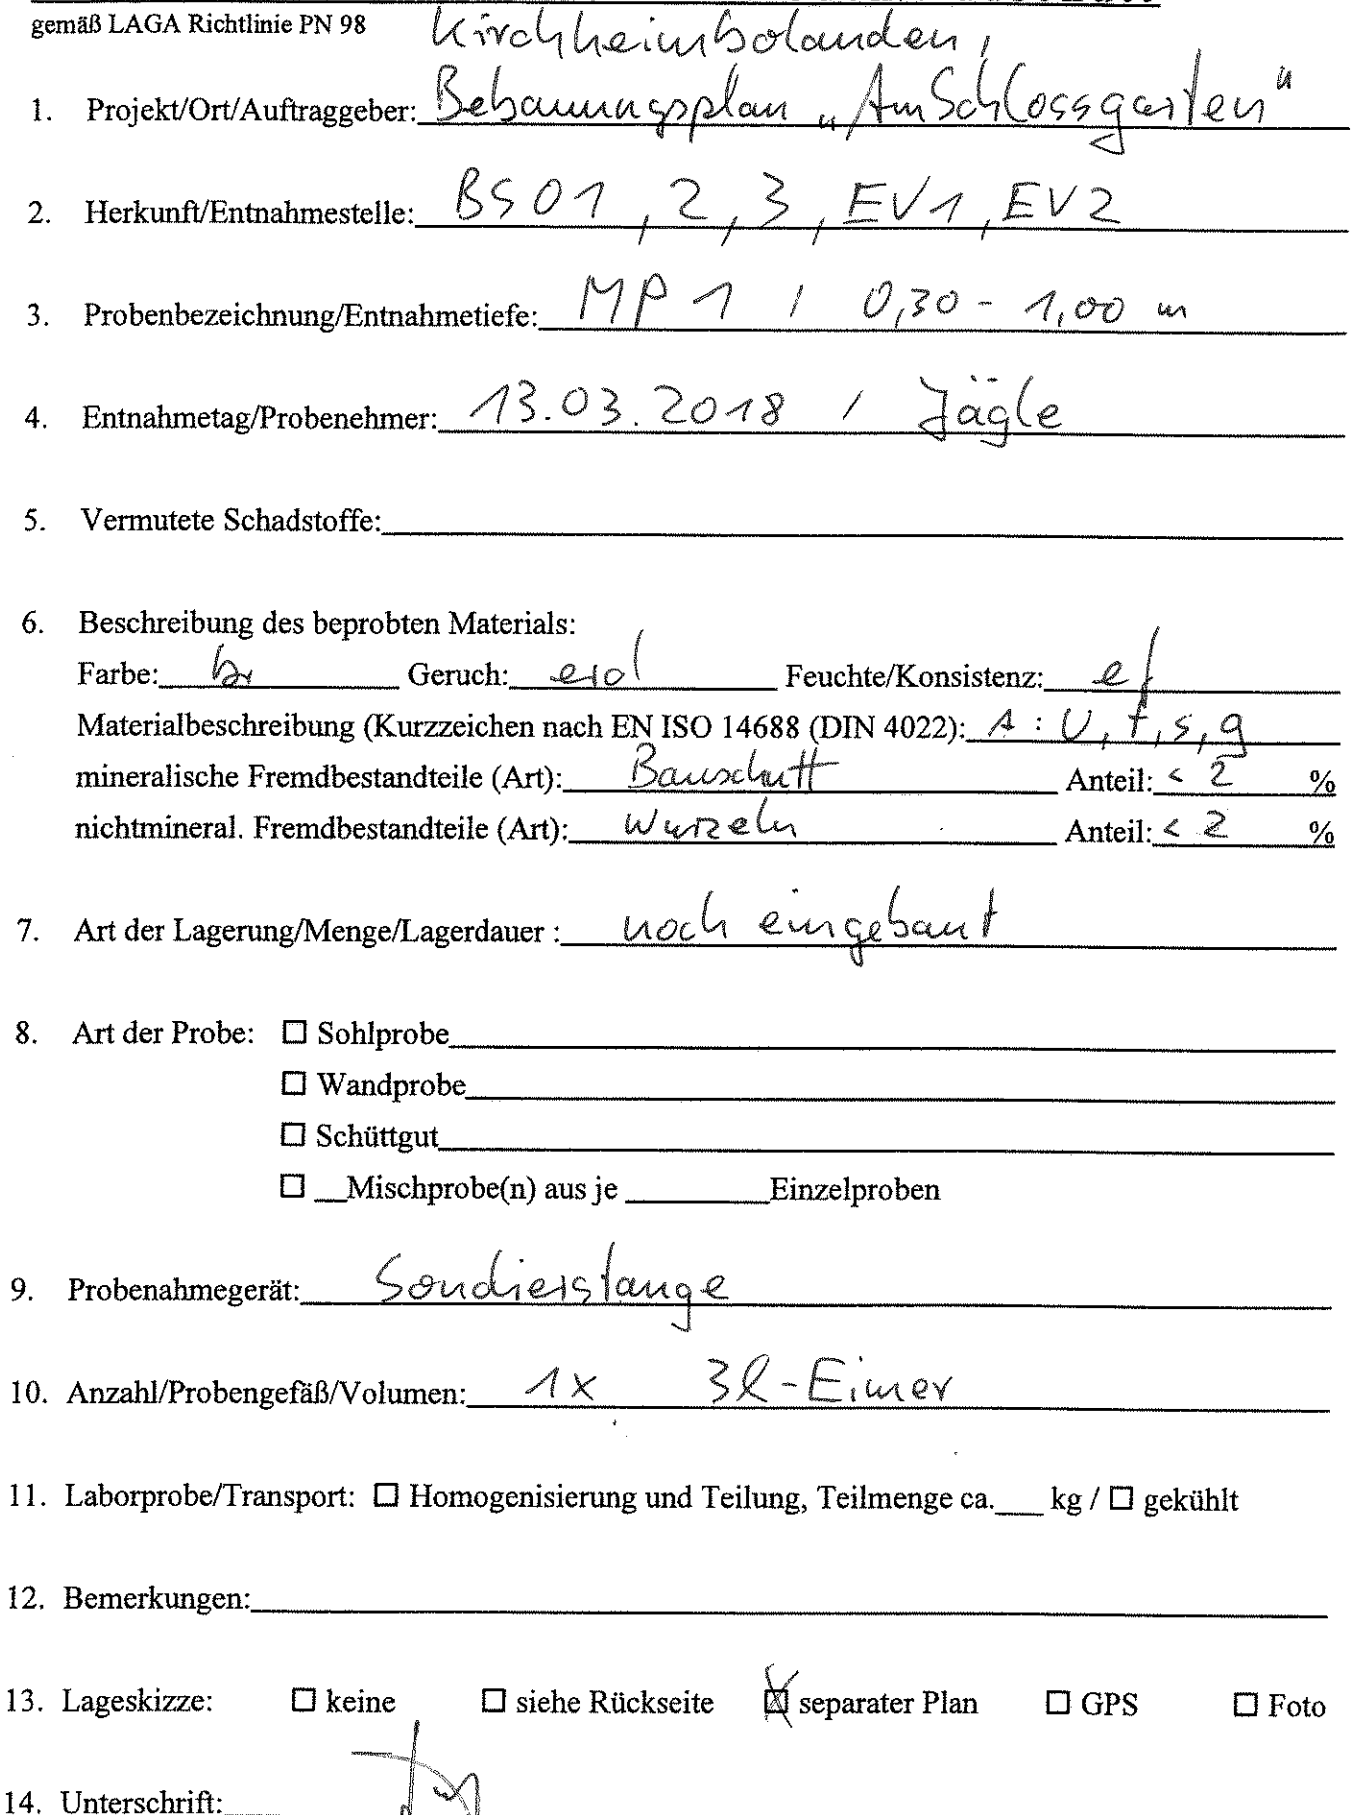 gemäß LAGA Richtlinie PN 98 Kirchheimbolanden,
1. Projekt/Ort/Auftraggeber: Bebauungsplan „Am Schlossgarten"
2. Herkunft/Entnahmestelle: BS01, 2, 3, EV1, EV2
3. Probenbezeichnung/Entnahmetiefe: MP 1 / 0,30 - 1,00 m
4. Entnahmetag/Probenehmer: 13.03.2018 / Jägle
5. Vermutete Schadstoffe:
6. Beschreibung des beprobten Materials:
Farbe: br Geruch: erd Feuchte/Konsistenz: ef
Materialbeschreibung (Kurzzeichen nach EN ISO 14688 (DIN 4022): A : U, t, s, g
mineralische Fremdbestandteile (Art): Bauschutt Anteil: < 2 %
nichtmineral. Fremdbestandteile (Art): Wurzeln Anteil: < 2 %
7. Art der Lagerung/Menge/Lagerdauer : noch eingebaut
8. Art der Probe: ☐ Sohlprobe
☐ Wandprobe
☐ Schüttgut
☐ __Mischprobe(n) aus je ________Einzelproben
9. Probenahmegerät: Sondierstange
10. Anzahl/Probengefäß/Volumen: 1x 3l-Eimer
11. Laborprobe/Transport: ☐ Homogenisierung und Teilung, Teilmenge ca.___ kg / ☐ gekühlt
12. Bemerkungen:
13. Lageskizze: ☐ keine ☐ siehe Rückseite ☒ separater Plan ☐ GPS ☐ Foto
14. Unterschrift: